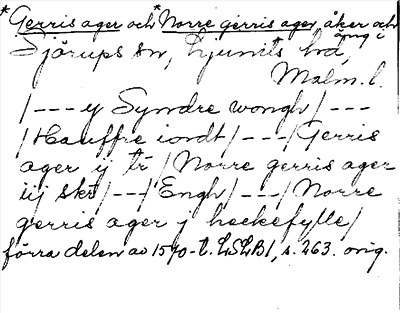 *Gerris ager och *Norre gerris ager, åker och
äng i
Sjörups sn, Ljunits hd,
Malm. l.
/--- y Syndre wongh/---
/Hauffre iordt/---/Gerris
ager ij tr/Norre gerris ager
iij skr/---/Engh/---/Norre
gerris ager j heckefylle/
förra delen av 1570-t. LSLB1, s. 463. orig.